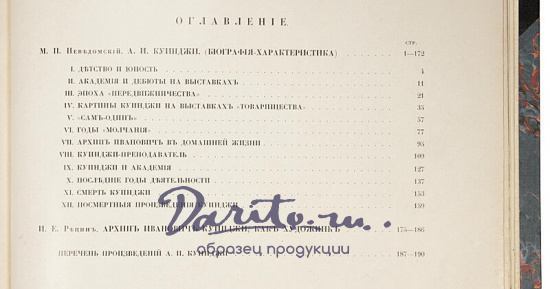 ОГЛАВЛЕНІЕ.
СТР.
М. П. Невѣдомскій. А. И. КУИНДЖИ. (БІОГРАФІЯ-ХАРАКТЕРИСТИКА) 1—172
I. ДѢТСТВО И ЮНОСТЬ 4
II. АКАДЕМІЯ И ДЕБЮТЫ НА ВЫСТАВКАХЪ 11
III. ЭПОХА «ПЕРЕДВИЖНИЧЕСТВА» 21
IV. КАРТИНЫ КУИНДЖИ НА ВЫСТАВКАХЪ «ТОВАРИЩЕСТВА» 35
V. «САМЪ-ОДИНЪ» 57
VI. ГОДЫ «МОЛЧАНІЯ» 77
VII. АРХИПЪ ИВАНОВИЧЪ ВЪ ДОМАШНЕЙ ЖИЗНИ 95
VIII. КУИНДЖИ-ПРЕПОДАВАТЕЛЬ 109
IX. КУИНДЖИ И АКАДЕМІЯ 127
X. ПОСЛѢДНІЕ ГОДЫ ДѢЯТЕЛЬНОСТИ 137
XI. СМЕРТЬ КУИНДЖИ 153
XII. ПОСМЕРТНЫЯ ПРОИЗВЕДЕНІЯ КУИНДЖИ 159
Darito.ru
И. Е. Рѣпинъ. АРХИПЪ ИВАНОВИЧЪ КУИНДЖИ, КАКЪ ХУДОЖНИКЪ 175—186
образец продукции
ПЕРЕЧЕНЬ ПРОИЗВЕДЕНІЙ А. И. КУИНДЖИ 187—190